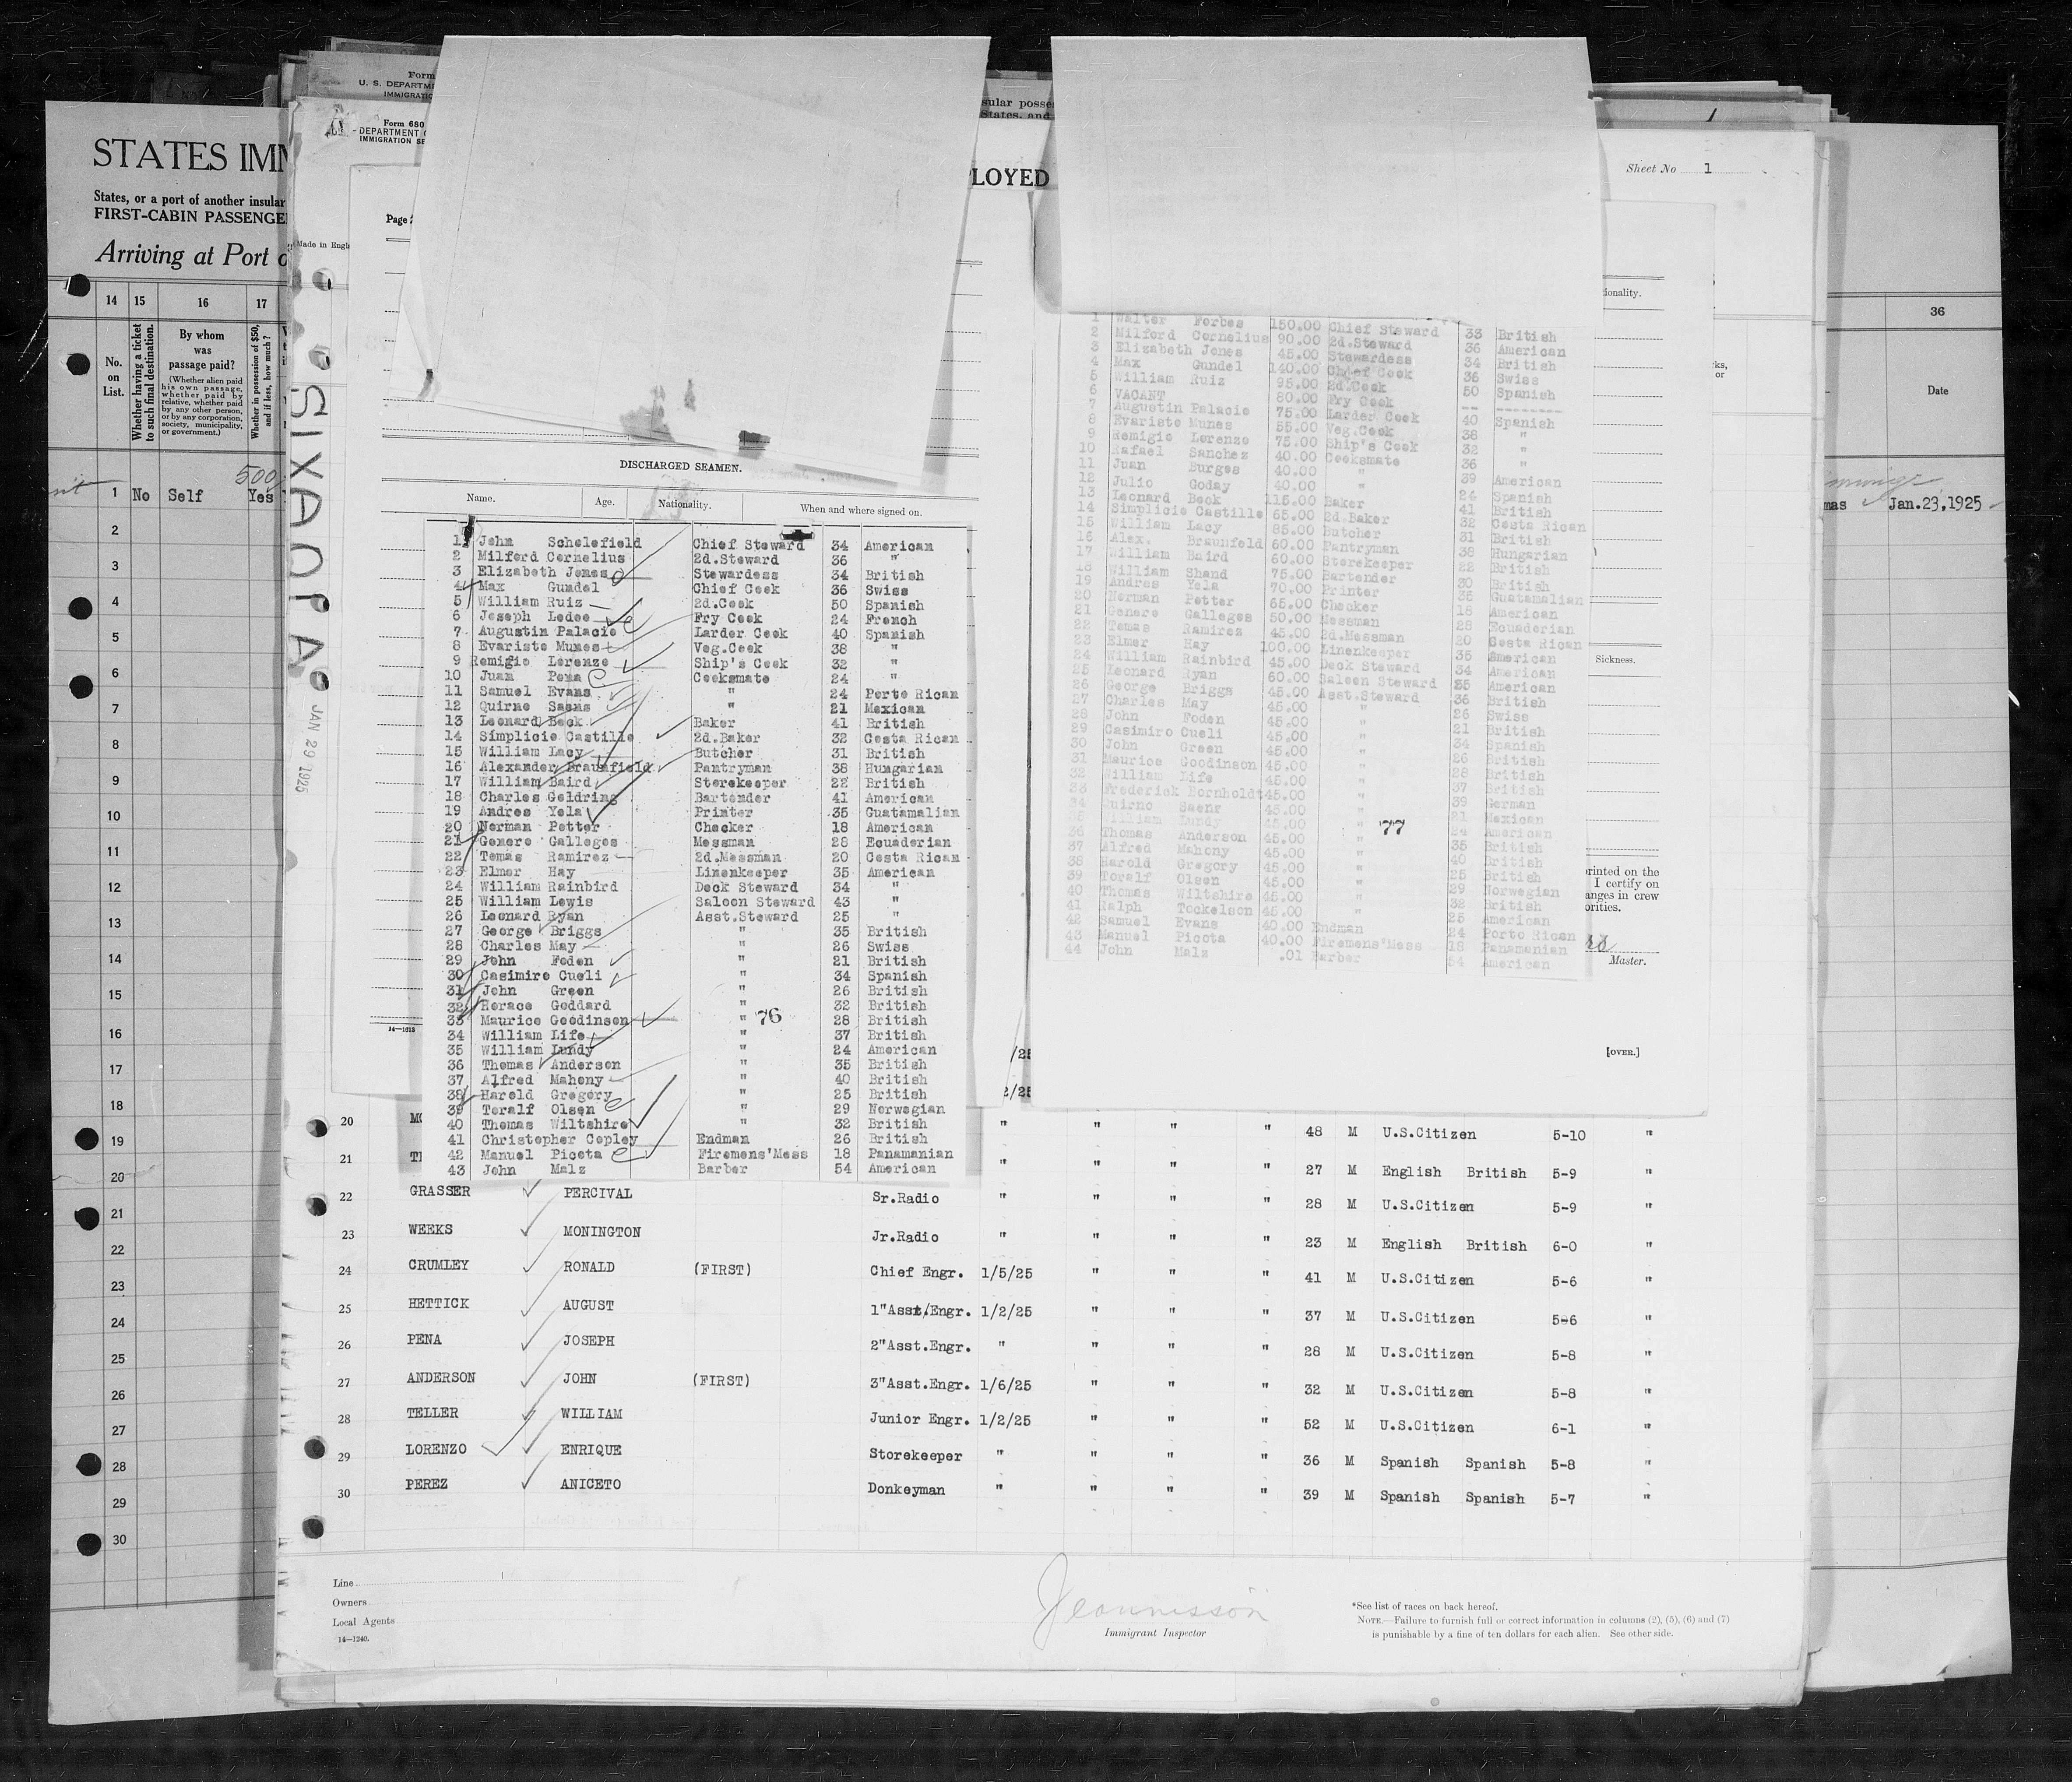 STATES IMM
States, or a port of another insular
FIRST-CABIN PASSENGE
Arriving at Port o
14 15 16 17
No. on List.
Whether having a ticket to such final destination.
By whom was passage paid?
(Whether alien paid his own passage, whether paid by relative, whether paid by any other person, or by any corporation, society, municipality, or government.)
Whether in possession of $50, and if less, how much?
500
1 No Self Yes
2
3
4
5
6
7
8
9
10
11
12
13
14
15
16
17
18
19
20
21
22
23
24
25
26
27
28
29
30
Form
U. S. DEPARTME
IMMIGRATIO
Form 680
DEPARTMENT O
IMMIGRATION SE
(Made in Engl
SIXAOLA
JAN 29 1925
Page
sular posse
States, and
LOYED
Sheet No 1
DISCHARGED SEAMEN.
Name. Age. Nationality. When and where signed on.
1 John Scholefield Chief Steward 34 American
2 Milford Cornelius 2d.Steward 36 "
3 Elizabeth Jones Stewardess 34 British
4 Max Gundel Chief Cook 36 Swiss
5 William Ruiz 2d.Cook 50 Spanish
6 Joseph Ledoe Fry Cook 24 French
7 Augustin Palacio Larder Cook 40 Spanish
8 Evaristo Munes Veg.Cook 38 "
9 Remigio Lorenzo Ship's Cook 32 "
10 Juan Pena Cooksmate 24 "
11 Samuel Evans " 24 Porto Rican
12 Quirno Saens " 21 Mexican
13 Leonard Beck Baker 41 British
14 Simplicio Castillo 2d.Baker 32 Costa Rican
15 William Lacy Butcher 31 British
16 Alexander Braunfield Pantryman 38 Hungarian
17 William Baird Storekeeper 22 British
18 Charles Goldring Bartender 41 American
19 Andres Yela Printer 35 Guatamalian
20 Norman Potter Checker 18 American
21 Genero Galleges Messman 28 Ecuadorian
22 Tomas Ramirez 2d.Messman 20 Costa Rican
23 Elmer Hay Linenkeeper 35 American
24 William Rainbird Deck Steward 34 "
25 William Lewis Saloon Steward 43 "
26 Leonard Ryan Asst.Steward 25 "
27 George Briggs " 35 British
28 Charles May " 26 Swiss
29 John Foden " 21 British
30 Casimiro Cueli " 34 Spanish
31 John Green " 26 British
32 Horace Goddard " 32 British
33 Maurice Goodinson " 76 28 British
34 William Life " 37 British
35 William Lundy " 24 American
36 Thomas Anderson " 35 British
37 Alfred Mahony " 40 British
38 Harold Gregory " 25 British
39 Toralf Olsen " 29 Norwegian
40 Thomas Wiltshire " 32 British
41 Christopher Copley Endman 26 British
42 Manuel Picota Firemens'Mess 18 Panamanian
43 John Malz Barber 54 American
14—1613
1 Walter Forbes 150.00 Chief Steward 33 British
2 Milford Cornelius 90.00 2d.Steward 36 American
3 Elizabeth Jones 45.00 Stewardess 34 British
4 Max Gundel 140.00 Chief Cook 36 Swiss
5 William Ruiz 95.00 2d.Cook 50 Spanish
6 VACANT 80.00 Fry Cook -- --------
7 Augustin Palacio 75.00 Larder Cook 40 Spanish
8 Evaristo Munes 55.00 Veg.Cook 38 "
9 Remigio Lorenzo 75.00 Ship's Cook 32 "
10 Rafael Sanchez 40.00 Cooksmate 36 "
11 Juan Burgos 40.00 " 39 American
12 Julio Goday 40.00 " 24 Spanish
13 Leonard Beck 115.00 Baker 41 British
14 Simplicio Castillo 65.00 2d.Baker 32 Costa Rican
15 William Lacy 85.00 Butcher 31 British
16 Alex. Braunfeld 60.00 Pantryman 38 Hungarian
17 William Baird 60.00 Storekeeper 22 British
18 William Shand 75.00 Bartender 30 British
19 Andres Yela 70.00 Printer 35 Guatamalian
20 Norman Potter 65.00 Checker 18 American
21 Genero Galleges 50.00 Messman 28 Ecuadorian
22 Tomas Ramirez 45.00 2d.Messman 20 Costa Rican
23 Elmer Hay 100.00 Linenkeeper 35 American
24 William Rainbird 45.00 Deck Steward 34 American
25 Leonard Ryan 60.00 Saloon Steward 25 American
26 George Briggs 45.00 Asst.Steward 36 British
27 Charles May 45.00 " 26 Swiss
28 John Foden 45.00 " 21 British
29 Casimiro Cueli 45.00 " 34 Spanish
30 John Green 45.00 " 26 British
31 Maurice Goodinson 45.00 " 28 British
32 William Life 45.00 " 37 British
33 Frederick Bornholdt 45.00 " 39 German
34 Quirno Saenz 45.00 " 21 Mexican
35 William Lundy 45.00 " 77 24 American
36 Thomas Anderson 45.00 " 35 British
37 Alfred Mahony 45.00 " 40 British
38 Harold Gregory 45.00 " 25 British
39 Toralf Olsen 45.00 " 29 Norwegian
40 Thomas Wiltshire 45.00 " 32 British
41 Ralph Tockelson 45.00 " 25 American
42 Samuel Evans 40.00 Endman 24 Porto Rican
43 Manuel Picota 40.00 Firemens'Mess 18 Panamanian
44 John Malz .01 Barber 54 American
ionality.
rks,
or
Sickness.
printed on the
I certify on
anges in crew
orities.
Master.
[OVER.]
36
Date
mas Jan.23,1925
/25
2/25
20 MO " " " " 48 M U.S.Citizen 5-10 "
21 " " " " 27 M English British 5-9 "
22 GRASSER PERCIVAL Sr.Radio " " " " 28 M U.S.Citizen 5-9 "
23 WEEKS MONINGTON Jr.Radio " " " " 23 M English British 6-0 "
24 CRUMLEY RONALD (FIRST) Chief Engr. 1/5/25 " " " 41 M U.S.Citizen 5-6 "
25 HETTICK AUGUST 1"Asst/Engr. 1/2/25 " " " 37 M U.S.Citizen 5-6 "
26 PENA JOSEPH 2"Asst.Engr. " " " " 28 M U.S.Citizen 5-8 "
27 ANDERSON JOHN (FIRST) 3"Asst.Engr. 1/6/25 " " " 32 M U.S.Citizen 5-8 "
28 TELLER WILLIAM Junior Engr. 1/2/25 " " " 52 M U.S.Citizen 6-1 "
29 LORENZO ENRIQUE Storekeeper " " " " 36 M Spanish Spanish 5-8 "
30 PEREZ ANICETO Donkeyman " " " " 39 M Spanish Spanish 5-7 "
Line
Owners
Local Agents
14—1240.
Immigrant Inspector
*See list of races on back hereof.
NOTE.—Failure to furnish full or correct information in columns (2), (5), (6) and (7)
is punishable by a fine of ten dollars for each alien. See other side.